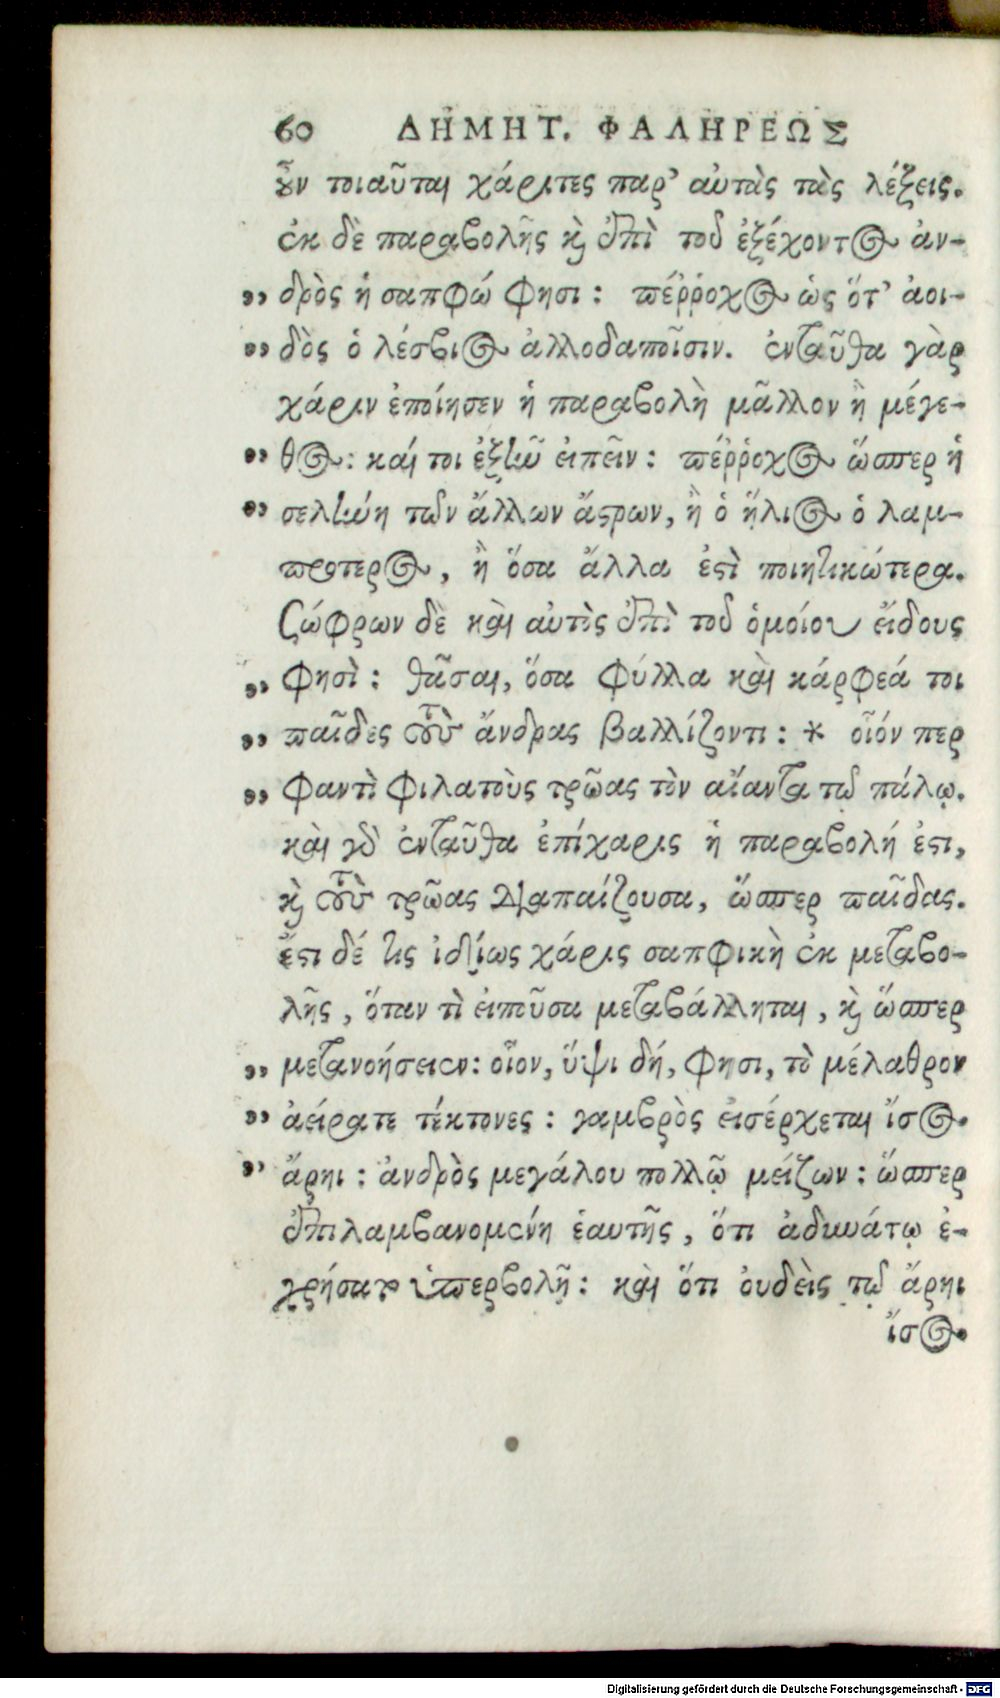 60 ΔΗΜΗΤ. ΦΑΛΗΡΕΩΣ
οὖν τοιαῦται χάριτες παρ' αὐτὰς τὰς λέξεις.
ἐκ δὲ παραβολῆς καὶ ἐπὶ τοῦ ἐξέχοντος ἀν-
„ δρὸς ἡ σαπφώ φησι: πέῤῥοχος ὡς ὅτ' ἀοι-
„ δὸς ὁ λέσβιος ἀλλοδαποῖσιν. ἐνταῦθα γὰρ
χάριν ἐποίησεν ἡ παραβολὴ μᾶλλον ἢ μέγε-
„ θος: καί τοι ἐξῆν εἰπεῖν: πέῤῥοχος ὥσπερ ἡ
„ σελήνη τῶν ἄλλων ἄστρων, ἢ ὁ ἥλιος ὁ λαμ-
προτερος, ἢ ὅσα ἄλλα ἐστὶ ποιητικώτερα.
Σώφρων δὲ καὶ αὐτὸς ἐπὶ τοῦ ὁμοίου εἴδους
„ φησὶ: θᾶσαι, ὅσα φύλλα καὶ κάρφεά τοι
„ παῖδες τοὺς ἄνδρας βαλλίζοντι: * οἷόν περ
„ φαντὶ φιλατοὺς τρῶας τὸν αἴαντα τῷ πάλῳ.
καὶ γὰρ ἐνταῦθα ἐπίχαρις ἡ παραβολή ἐστι,
καὶ τοὺς τρῶας διαπαίζουσα, ὥσπερ παῖδας.
ἔστι δέ τις ἰδίως χάρις σαπφικὴ ἐκ μεταβο-
λῆς, ὅταν τὶ εἰποῦσα μεταβάλληται, καὶ ὥσπερ
„ μετανοήσειεν: οἷον, ὕψι δή, φησι, τὸ μέλαθρον
„ ἀείρατε τέκτονες: γαμβρὸς εἰσέρχεται ἴσος
„ ἄρηι: ἀνδρὸς μεγάλου πολλῷ μείζων: ὥσπερ
ἐπιλαμβανομένη ἑαυτῆς, ὅτι ἀδυνάτῳ ἐ-
χρήσατο ὑπερβολῇ: καὶ ὅτι οὐδεὶς τῷ ἄρηι
ἴσος
Digitalisierung gefördert durch die Deutsche Forschungsgemeinschaft - DFG